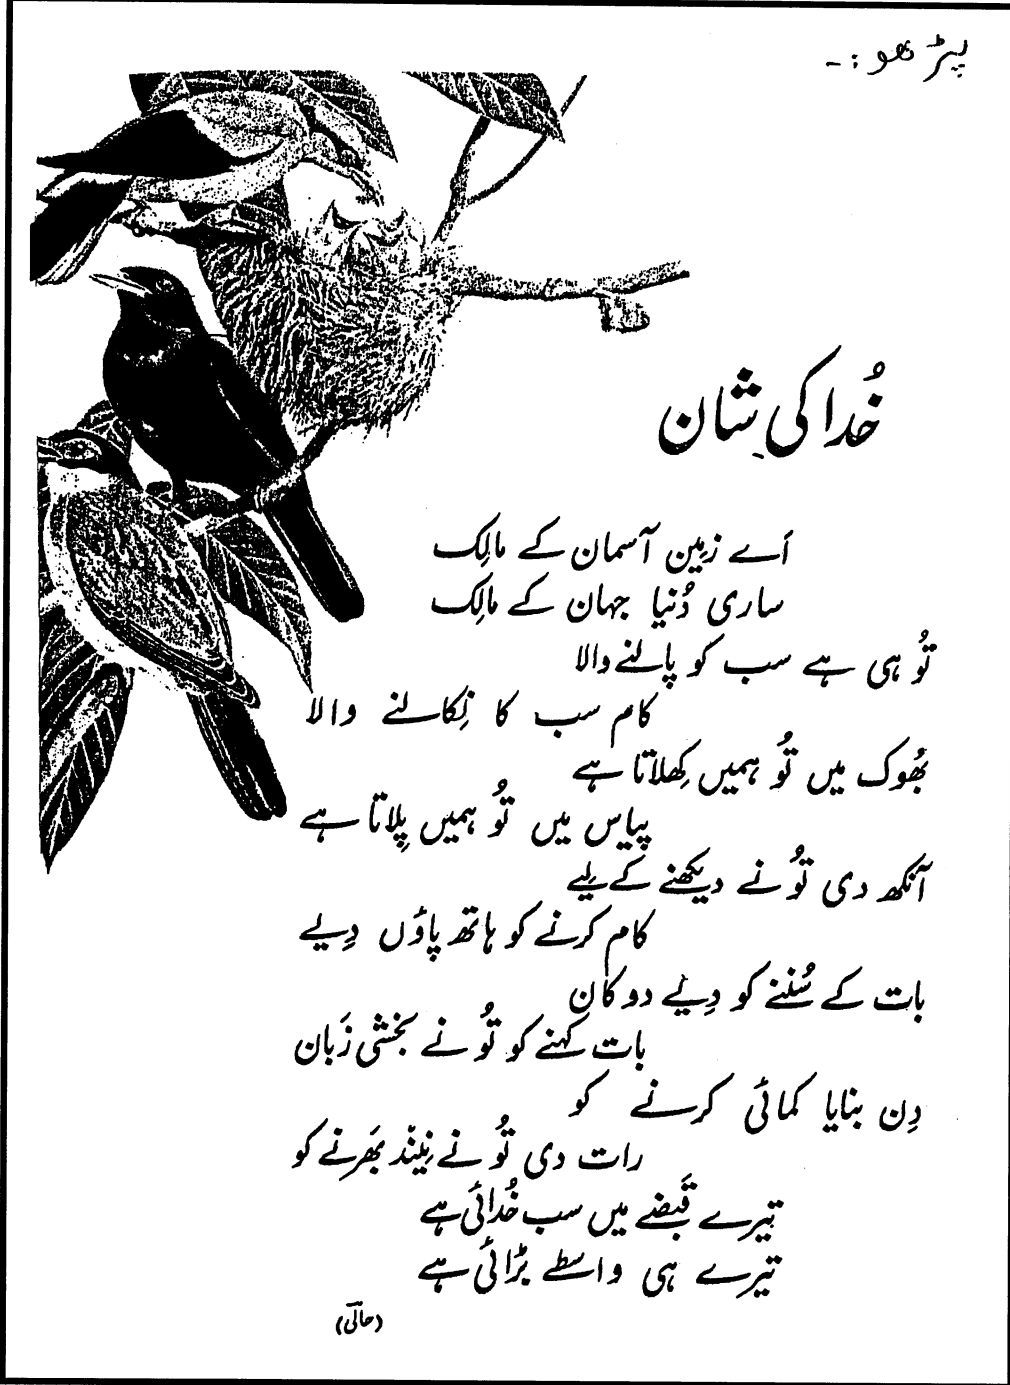 پڑھو :-
خُدا کی شان
اَے زمِین آسمان کے مالِک
ساری دُنیا جہان کے مالِک
تُو ہی ہے سب کو پالنے والا
کام سب کا نِکالنے والا
بھُوک میں تُو ہمیں کِھلاتا ہے
پیاس میں تُو ہمیں پِلاتا ہے
آنکھ دی تُو نے دیکھنے کے لیے
کام کرنے کو ہاتھ پاؤں دِیے
بات کے سُننے کو دِیے دو کان
بات کہنے کو تُو نے بخشی زَبان
دِن بنایا کمائی کرنے کو
رات دی تُو نے نِیند بَھرنے کو
تیرے قَبضے میں سب خُدائی ہے
تیرے ہی واسطے بڑائی ہے
(حالیؔ)